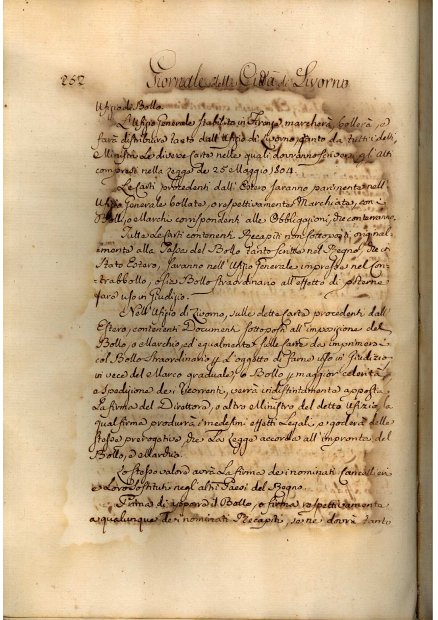 252 Giornale della Città di Livorno
Ufizio di Bollo.
L'Ufizio Generale stabilito in Firenze marcherà, bollerà, e
farà distribuire tanto dall'Ufizio di Livorno, quanto da tutti i detti
Ministri le diverse Carte nelle quali dovranno scriversi gli atti
compresi nella Legge de 25 Maggio 1804.
Le Carti procedenti dall'Estero saranno parimente nell'
Ufizio Generale bollate, o respettivamente Marchiate, con i
Bolli, o Marchi corrispondenti alle Obbligazioni, che conterranno.
Tutte le Carti contenenti Recapiti non sottoposti original-
mente alla Tassa del Bollo tanto scritte nel Regno, che in
Stato Estero, saranno nell'Ufizio Generale impresse nel Con-
trabbollo, o sia Bollo straordinario all'effetto di potersene
fare uso in Giudizio.
Nell'Ufizio di Livorno, sulle dette Carte procedenti dall'
Estero, contenenti Documenti sottoposti all'imposizione del
Bollo, o Marchio, ed egualmente sulle Carte da imprimersi
col Bollo Straordinario p l'oggetto di farne uso in Giudizio
in vece del Marco graduale, o Bollo p maggior celerità
e spedizione de' ricorrenti, verrà indistintamente apposta
la firma del Direttore, o altro Ministro del detto Ufizio, la
qual firma produrrà i medesimi effetti Legali, e goderà delle
stesse prerogative che la Legge accorda all'impronta del
Bollo, o Marchio.
Lo stesso valore avrà la firma de i nominati Cancellieri
e Loro sostituti negl'altri Paesi del Regno.
Prima di apporre il Bollo, o firma respettivamente
a qualunque de i nominati Recapiti, se ne dovrà tanto